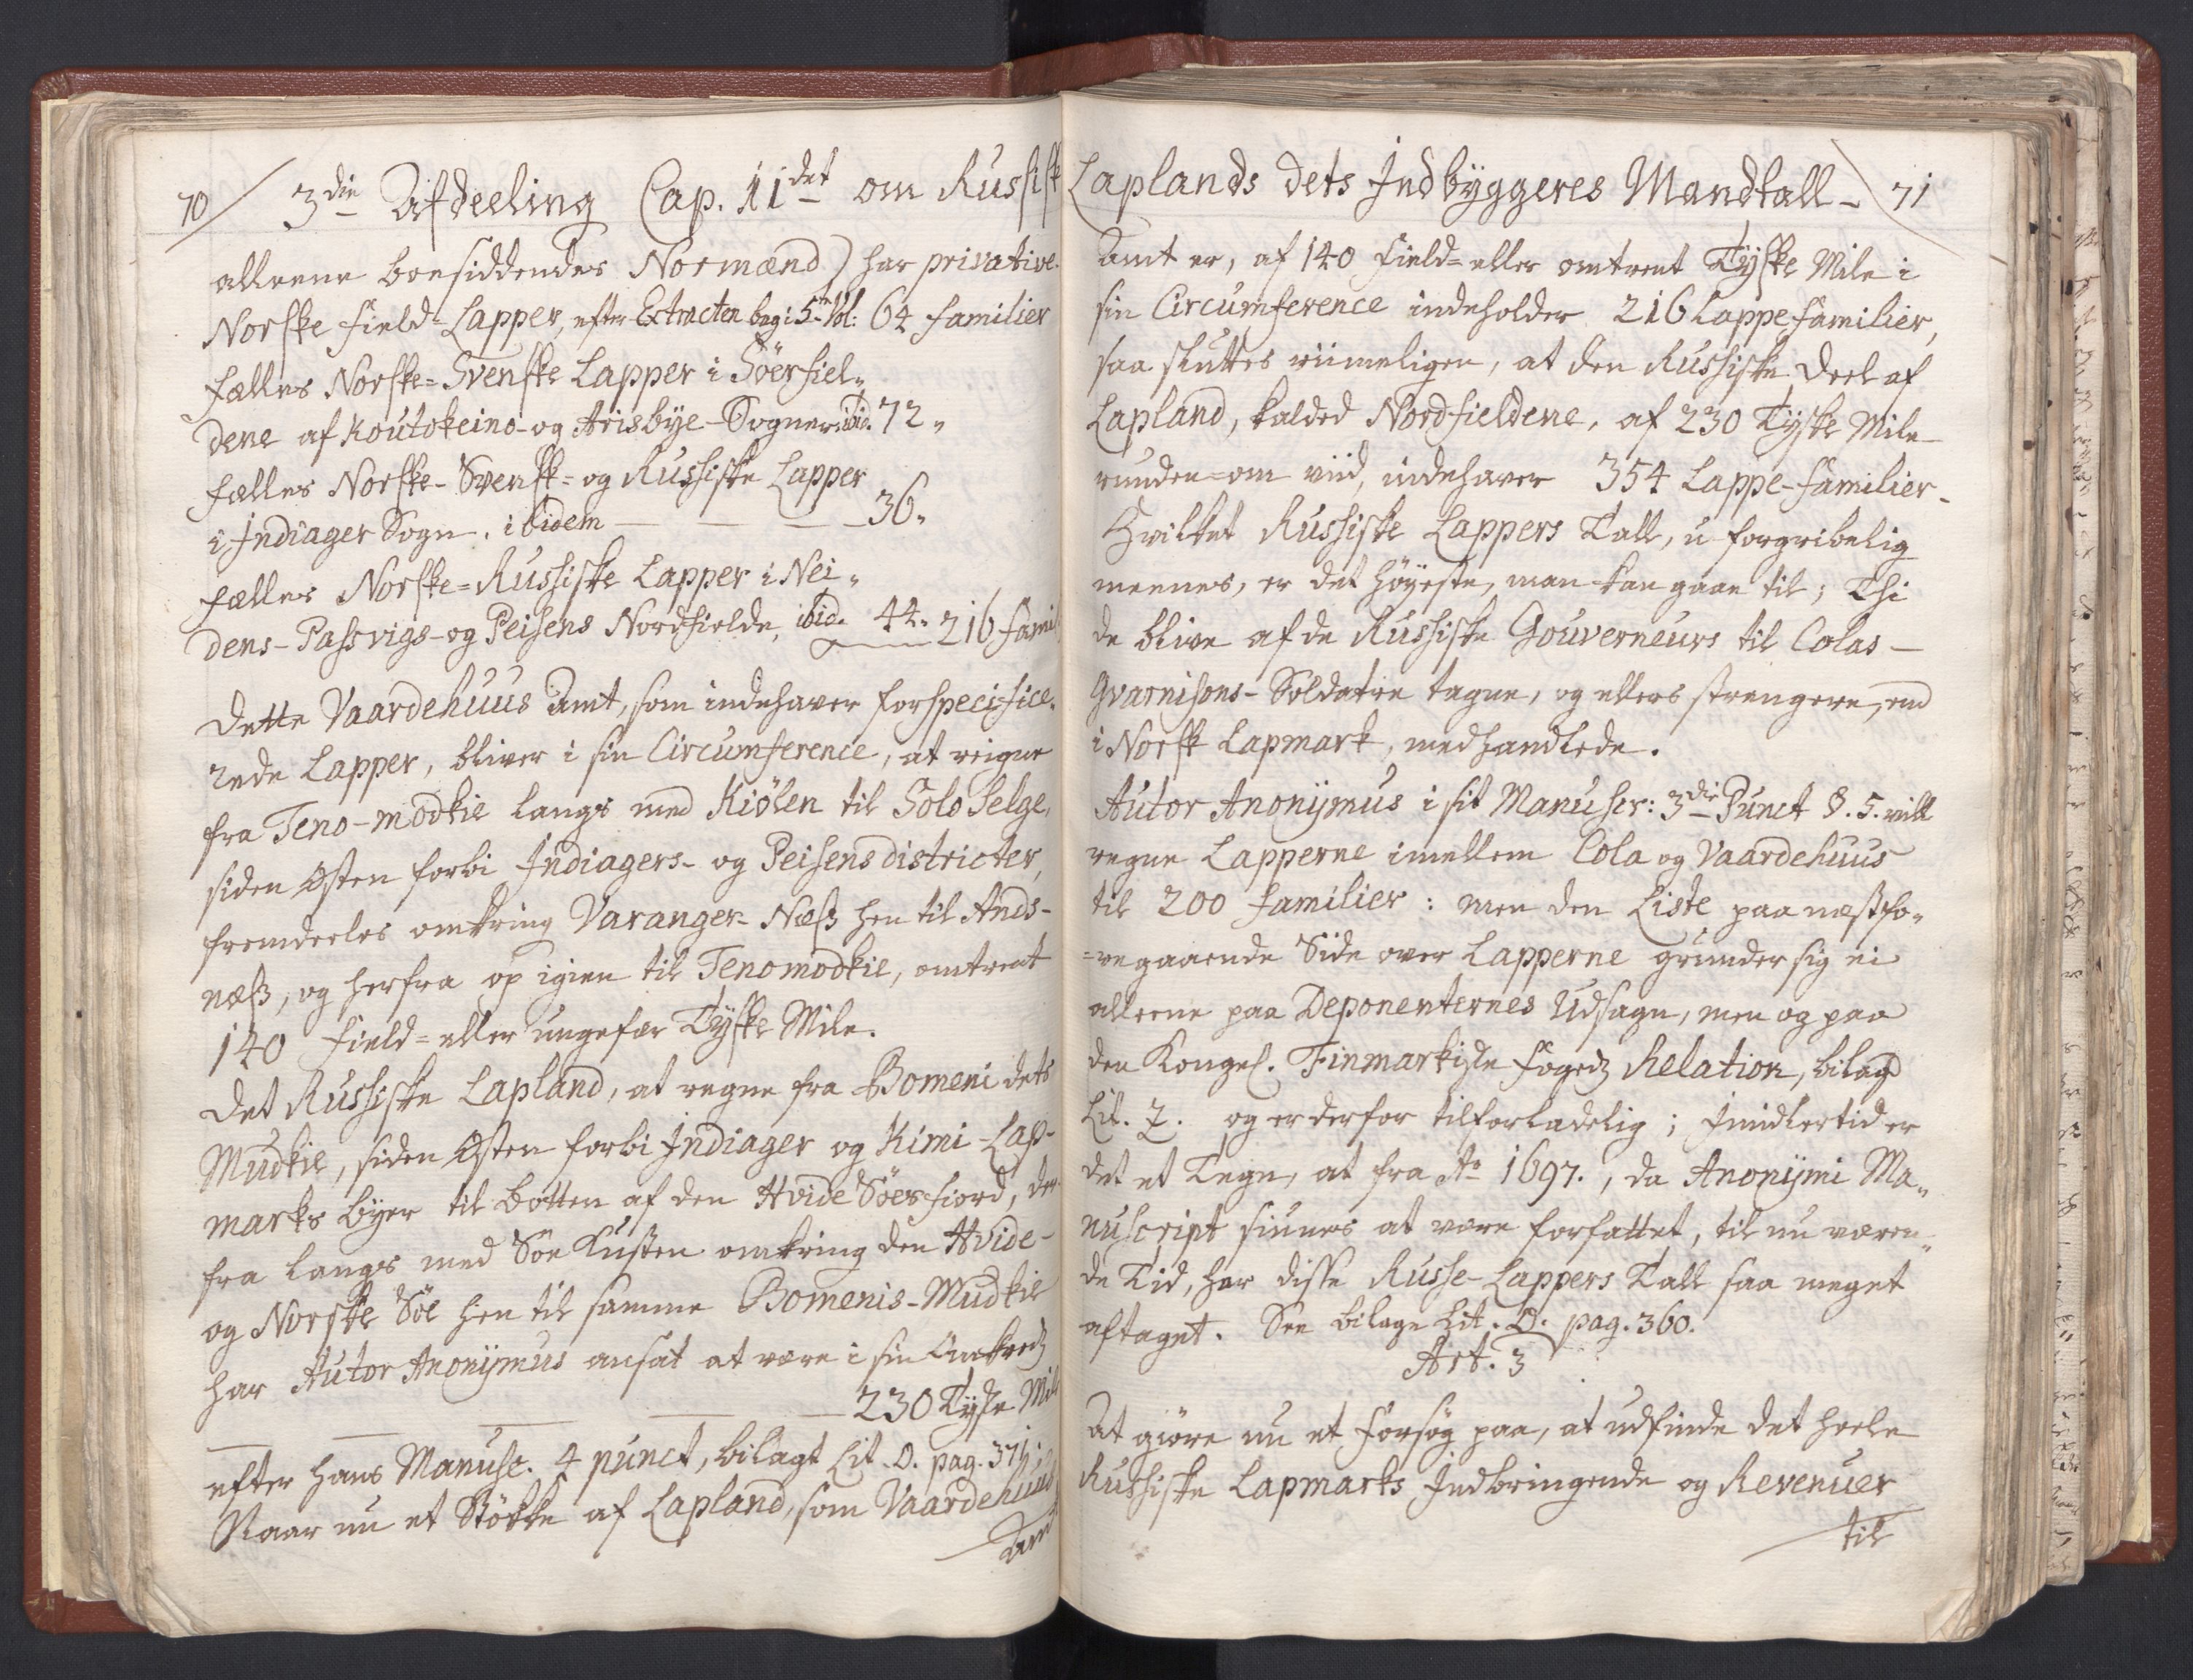 70 3die Afdeeling Cap. 11det om Russisk
alleene boesiddendes Normænd) har privative
Norske Field-Lapper, efter Extracten bag i 5te Vol: 64 familier
fælles Norske-Svenske Lapper i Söerfiel„
dene af Koutokeino- og Arisbye-Sogner ibid. 72„
fælles Norske-Svensk- og Russiske Lapper
i Indiager Sogn, ibidem — — — 36„
fælles Norske-Russiske Lapper i Nei„
dens-Passvigs- og Peisens Nordfielde, ibid. 44„ 216 famil
Dette Vaardehuus Amt, som indehaver forspecifice„
rede Lapper, bliver i sin Circumference, at reigne
fra Teno-modkie langs med Kiölen til Solo Selge,
siden Østen forbi Indiagers- og Peisens districter,
fremdeeles omkring Varanger-Næss hen til Ands-
næss, og herfra op igien til Tenomodkie, omtrent
140 Field- eller ungefær Tyske Mile.
Det Russiske Lapland, at regne fra Bomeni dets
Mudkie, siden Østen forbi Indiager og Kimi-Lap-
marks byer til botten af den Hvide Söes fiord, der
fra langs med Söe Kusten omkring den Hvide-
og Norske Söe hen til samme Bomenis-Mudkie
har Autor Anonymus ansat at være i sin Omkreds
— — — 230 Tyske Mile
efter hans Manusc. 4 punct, bilagt Lit. O. pag. 371;
Naar nu et Stökke af Lapland, som Vaardehuus
Amt
Laplands dets Indbyggeres Mandtall - 71
Amt er, af 140 Field- eller omtrent Tyske Mile i
sin Circumference indeholder 216 Lappe familier,
saa sluttes riimeligen, at den Russiske Deel af
Lapland, kalded Nordfieldene, af 230 Tyske Mile
runden-om viid, indehaver 354 Lappe-familier-
Hvilket Russiske Lappers Tall, uforgribelig
meenes, er det höyeste, man kan gaae til; Thi
de blive af de Russiske Gouverneurs til Colas-
Gvarnisons-Soldater tagne, og ellers strengere, end
i Norsk Lapmark, medhandlede.
Autor Anonymus i sit Manuscr: 3die Punct §. 5. will
regne Lapperne imellem Cola og Vaardehuus
til 200 familier: men den Liste paa næstfo„
=regaaende Side over Lapperne grunder sig ei
alleene paa Deponenternes Udsagn, men og paa
den Kongel. Finmarkiske fogeds Relation, bilagd
Lit. Z. og er derfor tilforladelig; Imidlertid er
det et Tegn, at fra Ao 1697., da Anonymi Ma„
nuscript siunes at være forfattet, til nu væren„
de Tid, har disse Russe-Lappers Tall saa meget
aftaget. See bilage Lit. O. pag. 360.
Art. 3
At giöre nu et forsög paa, at udfinde det heele
Russiske Lapmarks Indbringende og Revenuer
til